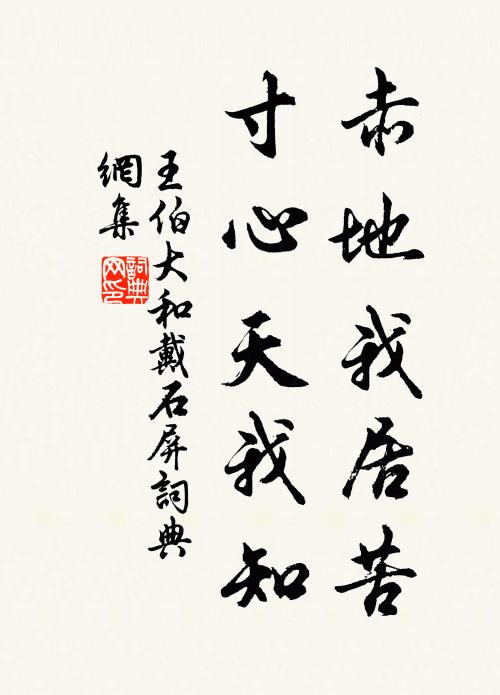 赤地我居苦
寸心天我知
王伯大和戴石屏詞典
網集
詞典網印